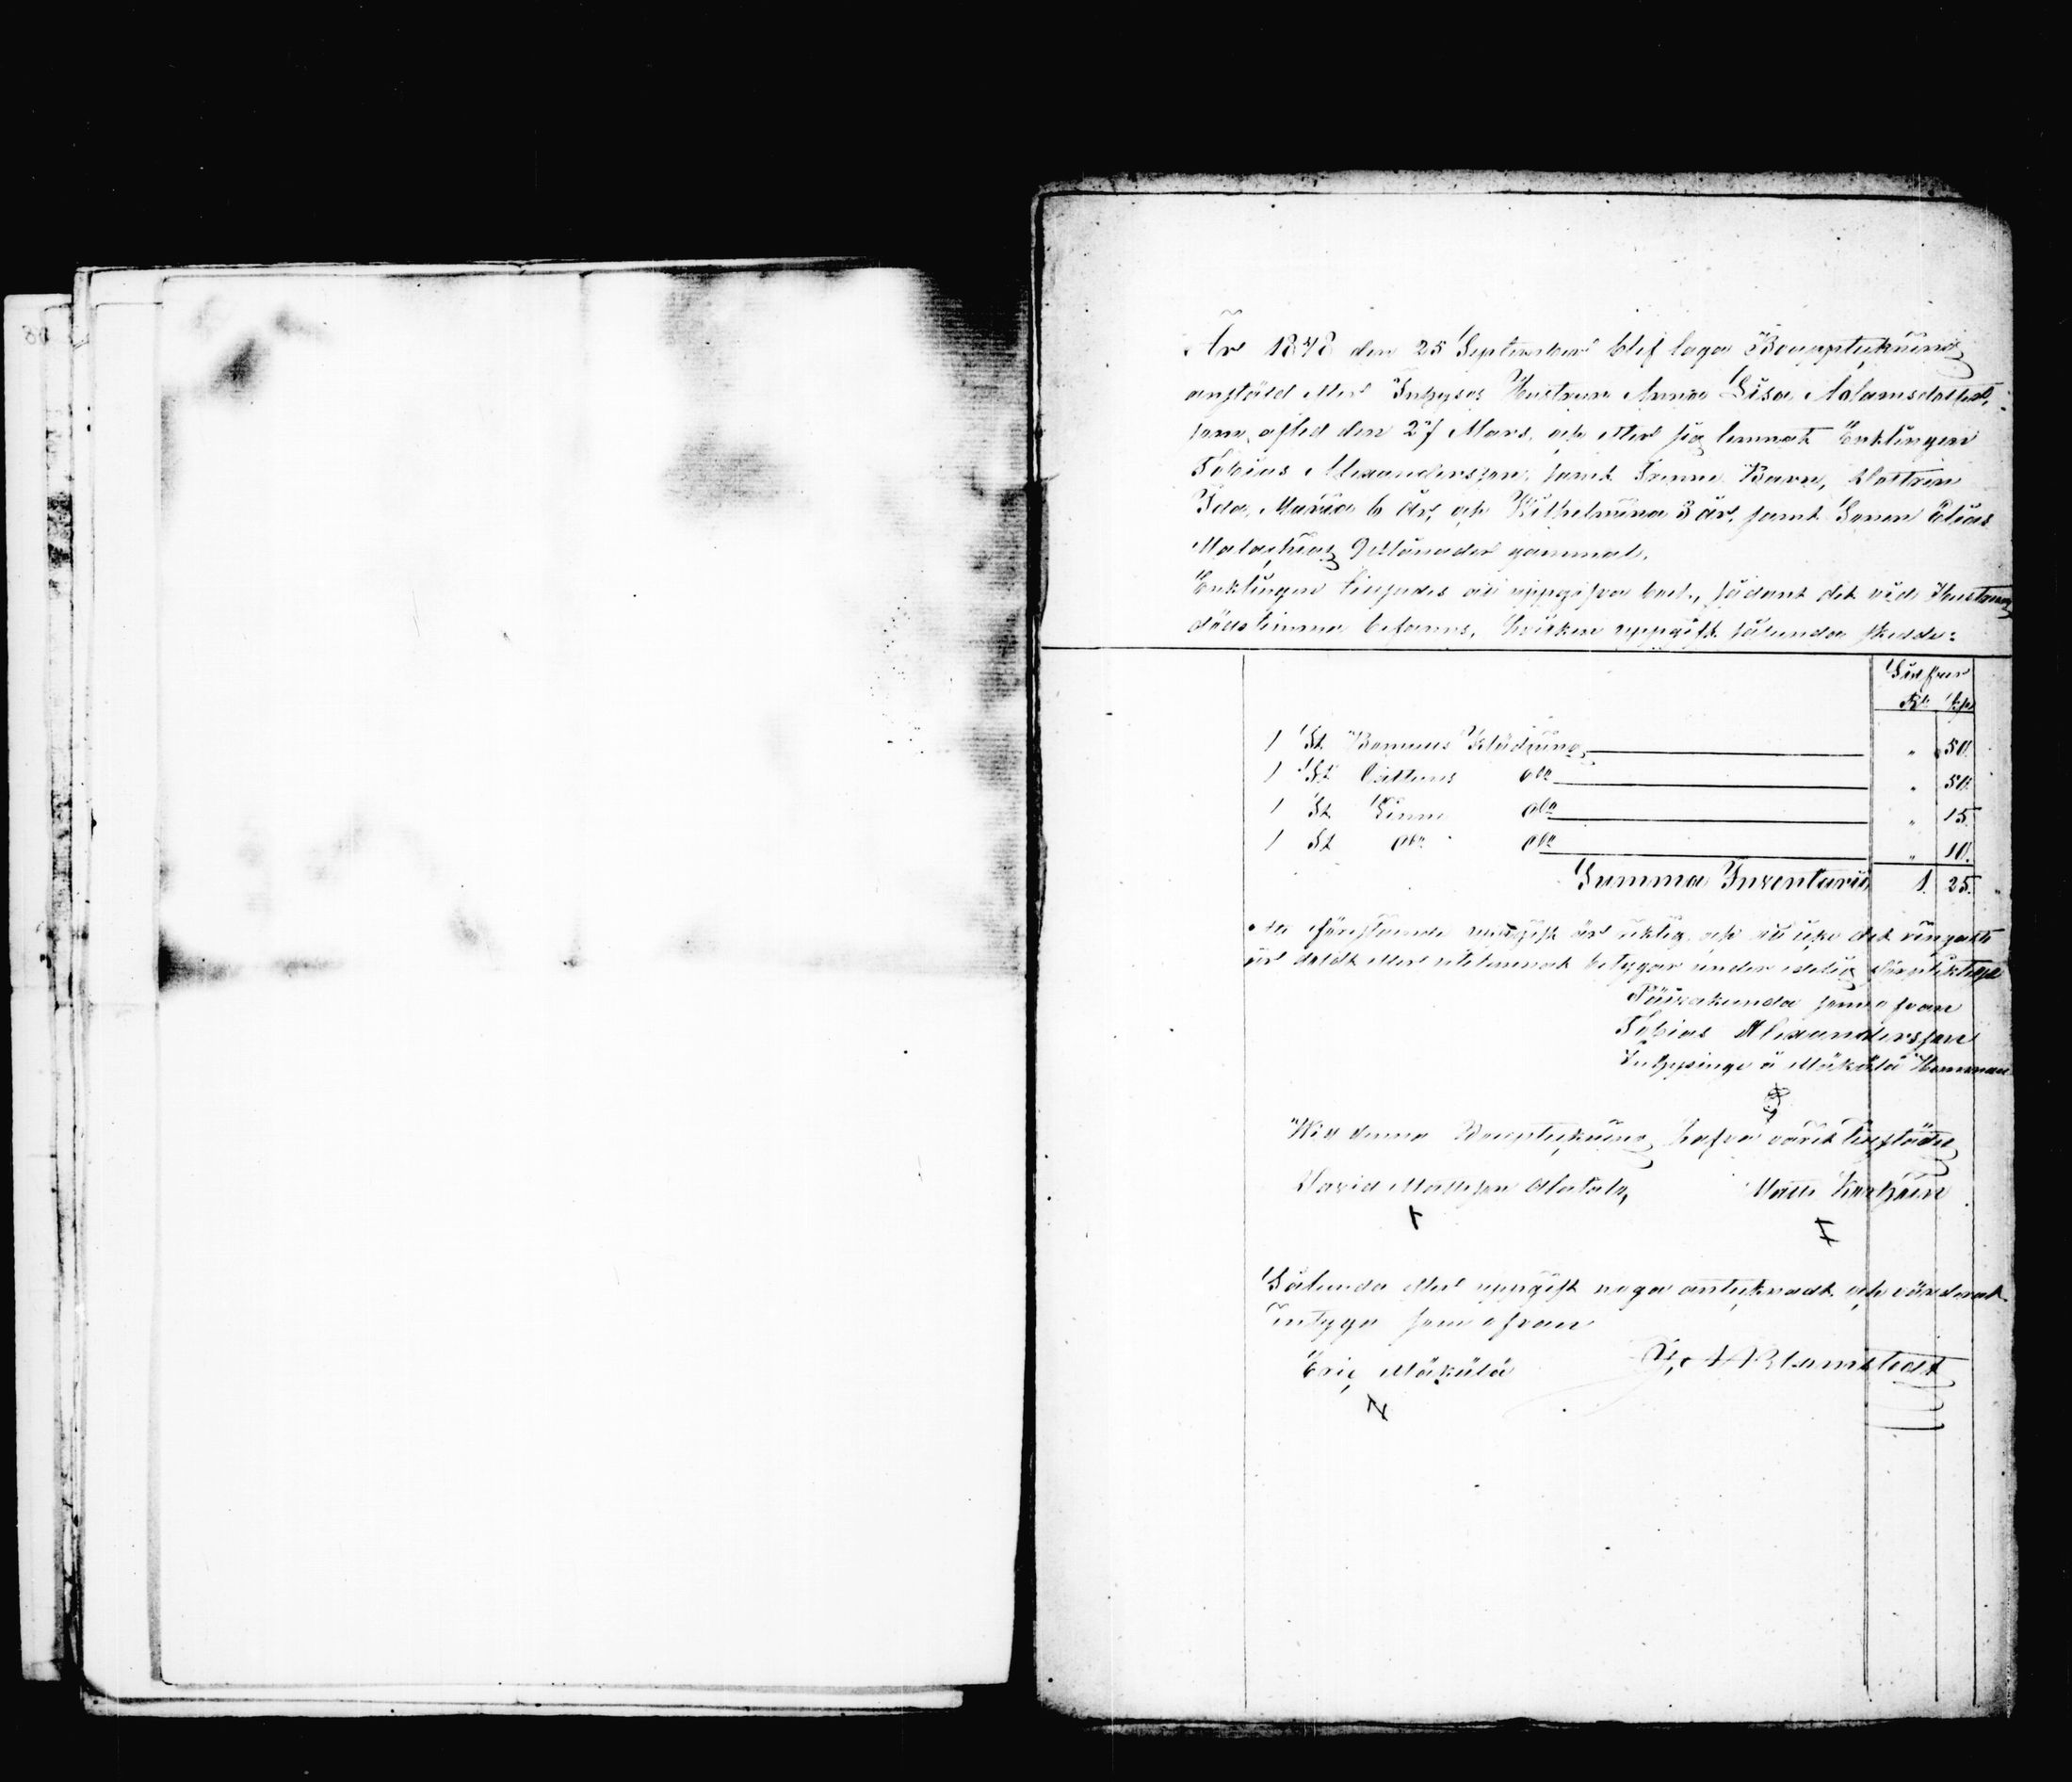 År 1848 den 25 September blef laga Bouppteckning
anstäld efter Inhyses Hustrun Anna Lisa Adamsdotter,
som afled den 27 Mars, och efter sig lemnat Enklingen
Tobias Alexandersson, samt Trenne Barn, Dottren
Ida Maria 6 år, och Wilhelmina 3 år, samt Sonen Elias
Malachias 9 Månader gammal.
Enklingen tillsades att uppgifva boet, sådant det vid Hustruns
dödstimma befanns, hvilken uppgift sålunda skedde:
Silfver
Rb. Kp
1 St Bomuls Klädning " 50.
1 St Cattuns do " 50.
1 St Linne do " 15.
1 St do do " 10.
Summa Inventarii 1. 25.
Att förestående uppgift är riktig och att icke det ringaste
är doldt eller utelemnat betygar under edelig förpliktelse
Päiväkunda som ofvan
Tobias Alexandersson
Inhysinge å Mäkälä Hemman
Wid denna Bouppteckning hafva varit tillstädes
David Mattsson Alatalo, Matts Korhoin
Sålunda efter uppgift noga antecknadt och värderat
intyga som ofvan
Eric Mäkälä A Blamstedt